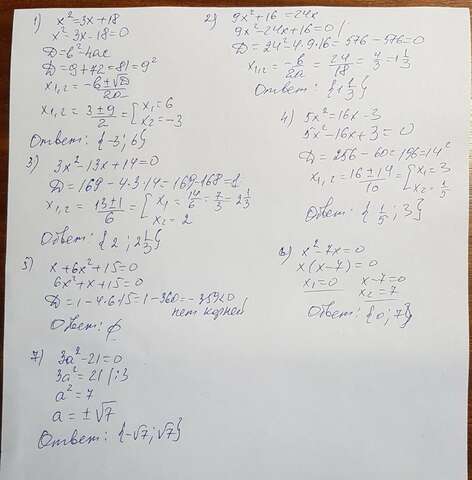 1) x²=3x+18
x²-3x-18=0
D=b²-4ac
D=9+72=81=9²
x₁,₂=(-b±√D)/2a
x₁,₂=(3±9)/2=[x₁=6
x₂=-3
Ответ: {-3;6}
2) 9x²+16=24x
9x²-24x+16=0
D=24²-4·9·16=576-576=0
x₁,₂=-b/2a=24/18=4/3=1 1/3
Ответ: {1 1/3}
3) 3x²-13x+14=0
D=169-4·3·14=169-168=1
x₁,₂=(13±1)/6=[x₁=14/6=7/3=2 1/3
x₂=2
Ответ: {2; 2 1/3}
4) 5x²=16x-3
5x²-16x+3=0
D=256-60=196=14²
x₁,₂=(16±14)/10=[x₁=3
x₂=1/5
Ответ: {1/5; 3}
5) x+6x²+15=0
6x²+x+15=0
D=1-4·6·15=1-360=-359<0
нет корней
Ответ: ∅
6) x²-7x=0
x(x-7)=0
x₁=0 x-7=0
x₂=7
Ответ: {0;7}
7) 3a²-21=0
3a²=21 |:3
a²=7
a=±√7
Ответ: {-√7;√7}